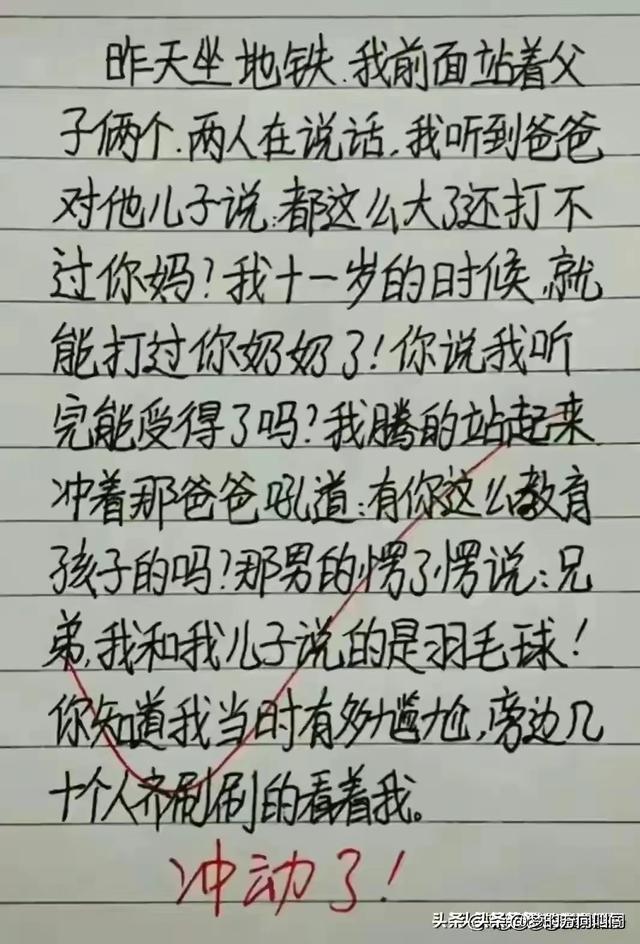 昨天坐地铁.我前面站着父
子俩个.两人在说话,我听到爸爸
对他儿子说:都这么大了还打不
过你妈?我十一岁的时候,就
能打过你奶奶了!你说我听
完能受得了吗?我腾的站起来
冲着那爸爸吼道:有你这么教育
孩子的吗?那男的愣了愣说:兄
弟,我和我儿子说的是羽毛球!
你知道我当时有多尴尬,旁边几
十个人齐刷刷的看着我。
冲动了!